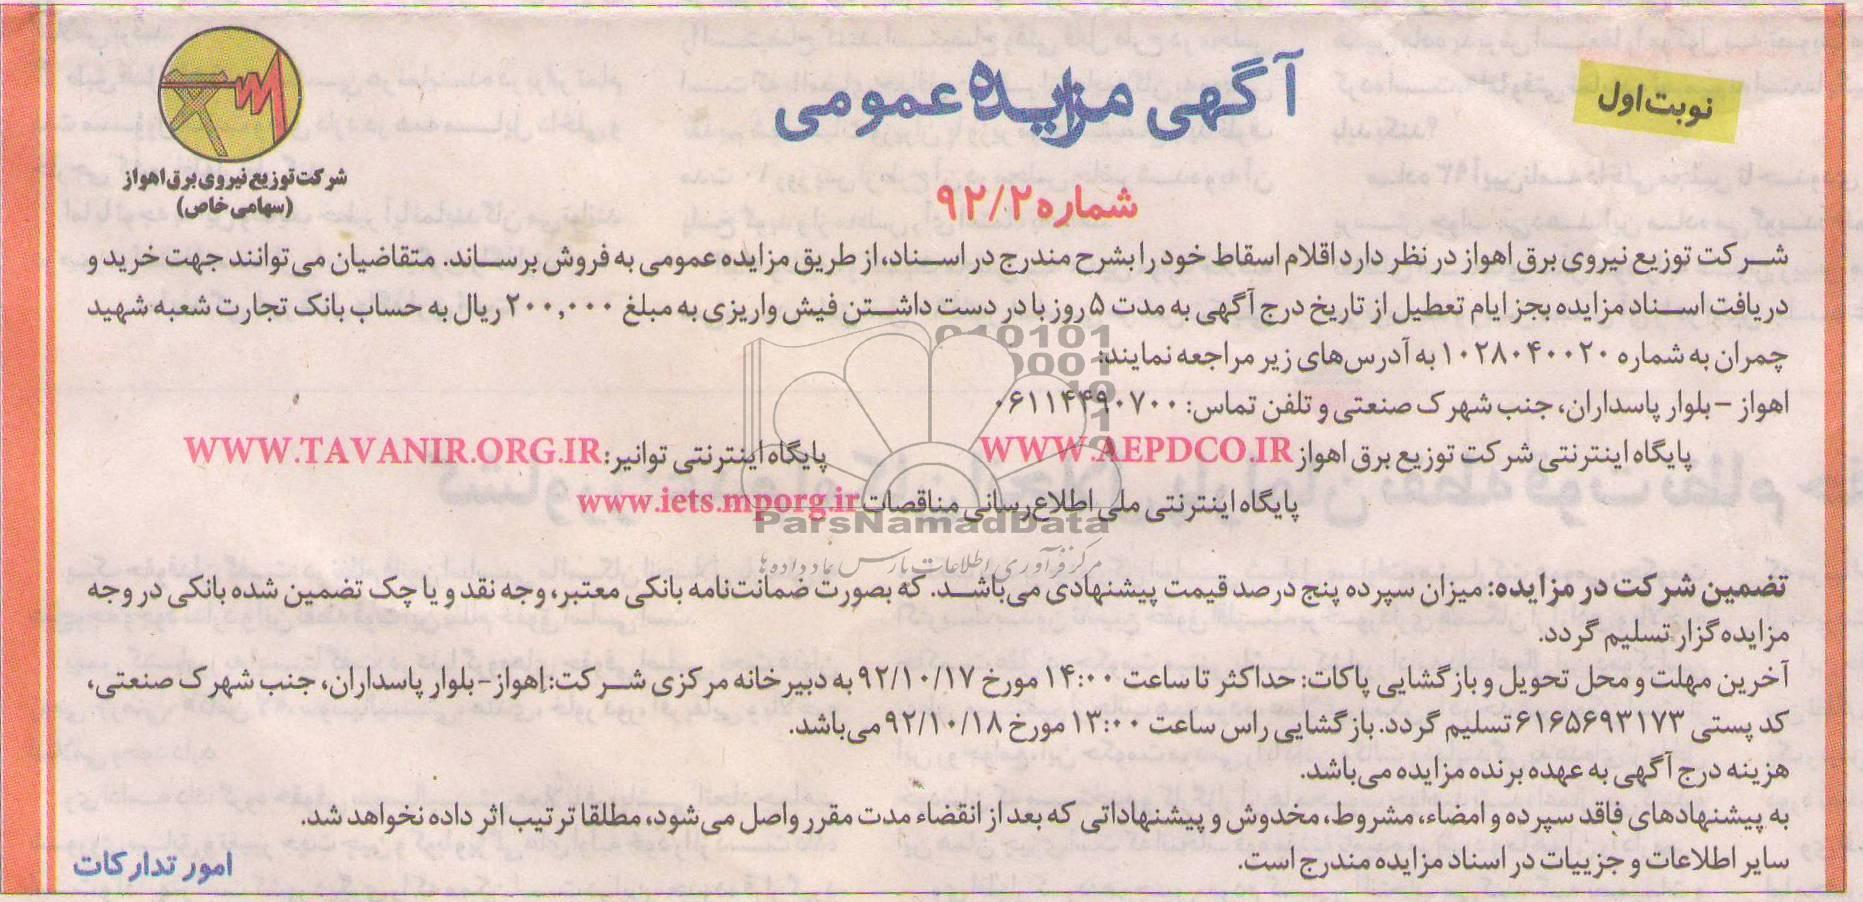 نوبت اول
آگهی مزایده عمومی
شرکت توزیع نیروی برق اهواز
(سهامی خاص)
شماره ۹۲/۲
شرکت توزیع نیروی برق اهواز در نظر دارد اقلام اسقاط خود را بشرح مندرج در اسناد، از طریق مزایده عمومی به فروش برساند. متقاضیان می توانند جهت خرید و
دریافت اسناد مزایده بجز ایام تعطیل از تاریخ درج آگهی به مدت ۵ روز با در دست داشتن فیش واریزی به مبلغ ۲۰۰,۰۰۰ ریال به حساب بانک تجارت شعبه شهید
چمران به شماره ۱۰۲۸۰۴۰۰۲۰ به آدرس‌های زیر مراجعه نمایند:
اهواز – بلوار پاسداران، جنب شهرک صنعتی و تلفن تماس: ۰۶۱۱۴۴۹۰۷۰۰
پایگاه اینترنتی شرکت توزیع برق اهواز WWW.AEPDCO.IR پایگاه اینترنتی توانیر: WWW.TAVANIR.ORG.IR
پایگاه اینترنتی ملی اطلاع رسانی مناقصات www.iets.mporg.ir
ParsNamadData
مرکز فرآوری اطلاعات پارس نماد داده‌ها
تضمین شرکت در مزایده: میزان سپرده پنج درصد قیمت پیشنهادی می‌باشد. که بصورت ضمانت‌نامه بانکی معتبر، وجه نقد و یا چک تضمین شده بانکی در وجه
مزایده گزار تسلیم گردد.
آخرین مهلت و محل تحویل و بازگشایی پاکات: حداکثر تا ساعت ۱۴:۰۰ مورخ ۹۲/۱۰/۱۷ به دبیرخانه مرکزی شرکت: اهواز- بلوار پاسداران، جنب شهرک صنعتی،
کد پستی ۶۱۶۵۶۹۳۱۷۳ تسلیم گردد. بازگشایی راس ساعت ۱۳:۰۰ مورخ ۹۲/۱۰/۱۸ می‌باشد.
هزینه درج آگهی به عهده برنده مزایده می‌باشد.
به پیشنهادهای فاقد سپرده و امضاء، مشروط، مخدوش و پیشنهاداتی که بعد از انقضاء مدت مقرر واصل می‌شود، مطلقا ترتیب اثر داده نخواهد شد.
سایر اطلاعات و جزییات در اسناد مزایده مندرج است.
امور تدارکات